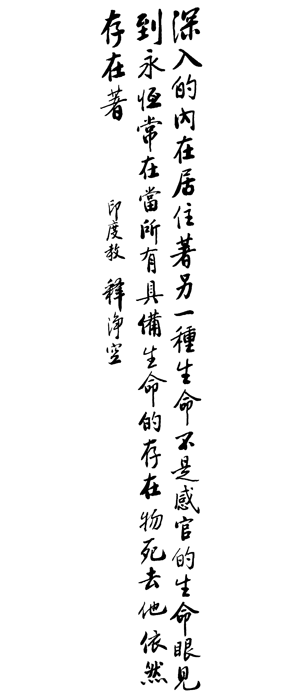 深入的內在居住著另一種生命不是感官的生命眼見
到永恆常在當所有具備生命的存在物死去他依然
存在著
印度教 釋淨空